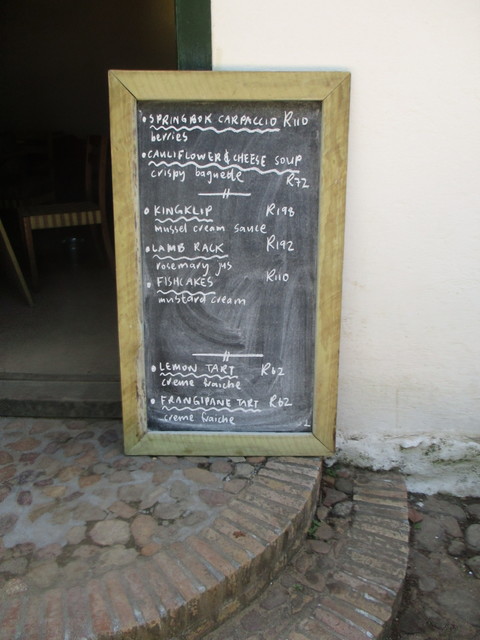 SPRINGBOK CARPACCIO R110
berries
CAULIFLOWER & CHEESE SOUP
crispy baguette R72
KINGKLIP R198
mussel cream sauce
LAMB RACK R192
rosemary jus
FISHCAKES R110
mustard cream
LEMON TART R62
creme fraiche
FRANGIPANE TART R62
creme fraiche